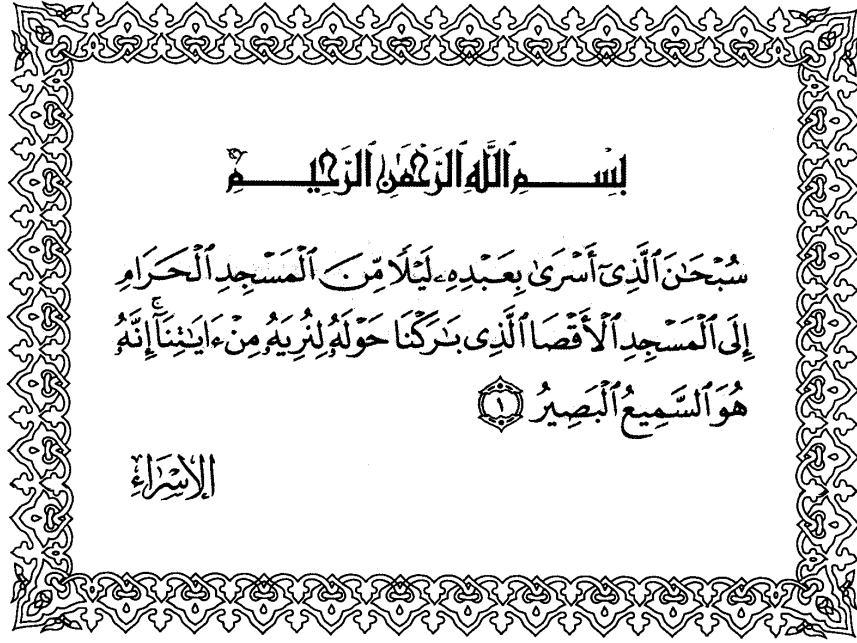 بِسْمِ ٱللَّهِ ٱلرَّحْمَٰنِ ٱلرَّحِيمِ
سُبْحَٰنَ ٱلَّذِىٓ أَسْرَىٰ بِعَبْدِهِۦ لَيْلًا مِّنَ ٱلْمَسْجِدِ ٱلْحَرَامِ
إِلَى ٱلْمَسْجِدِ ٱلْأَقْصَا ٱلَّذِى بَٰرَكْنَا حَوْلَهُۥ لِنُرِيَهُۥ مِنْ ءَايَٰتِنَآ ۚ إِنَّهُۥ
هُوَ ٱلسَّمِيعُ ٱلْبَصِيرُ ١
الإِسْرَاءِ